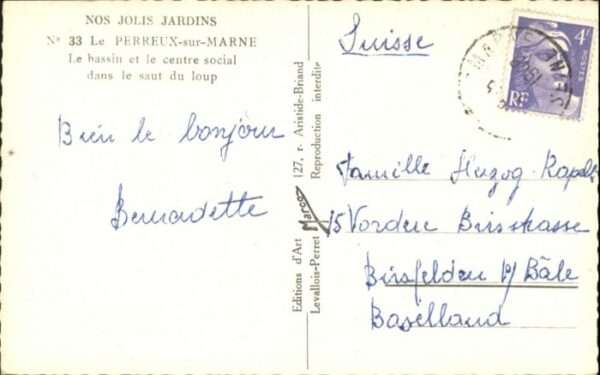 NOS JOLIS JARDINS
N° 33 Le PERREUX-sur-MARNE
Le bassin et le centre social
dans le saut du loup
Bien le bonjour
Bernadette
Editions d'Art Marco 127, r. Aristide-Briand
Levallois-Perret Reproduction interdite
Suisse
4F
POSTES
RF
MARNE
SEINE
Famille Herzog-
15 Vordere Birsstrasse
Birsfelden p/ Bâle
Baselland